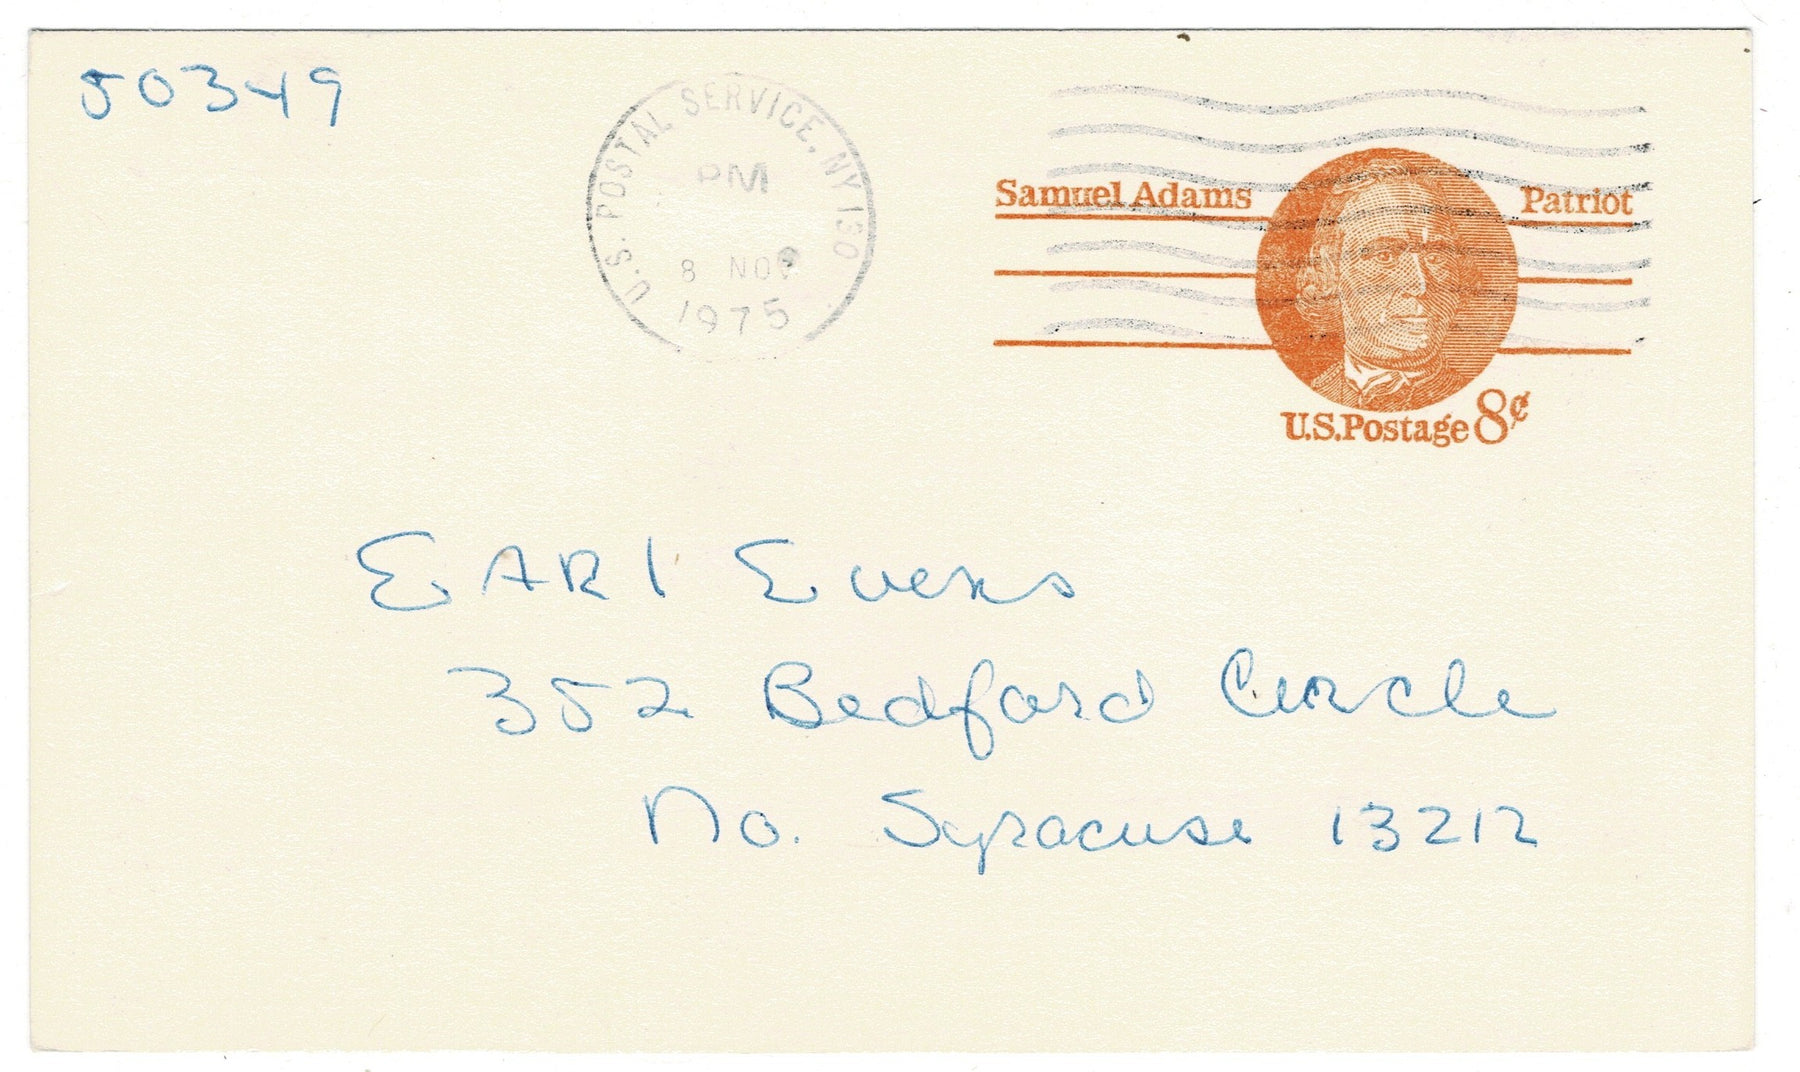 50349
U.S. POSTAL SERVICE, NY 150
PM
8 NOV
1975
Samuel Adams Patriot
U.S. Postage 8¢
EARl Evens
352 Bedford Circle
No. Syracuse 13212